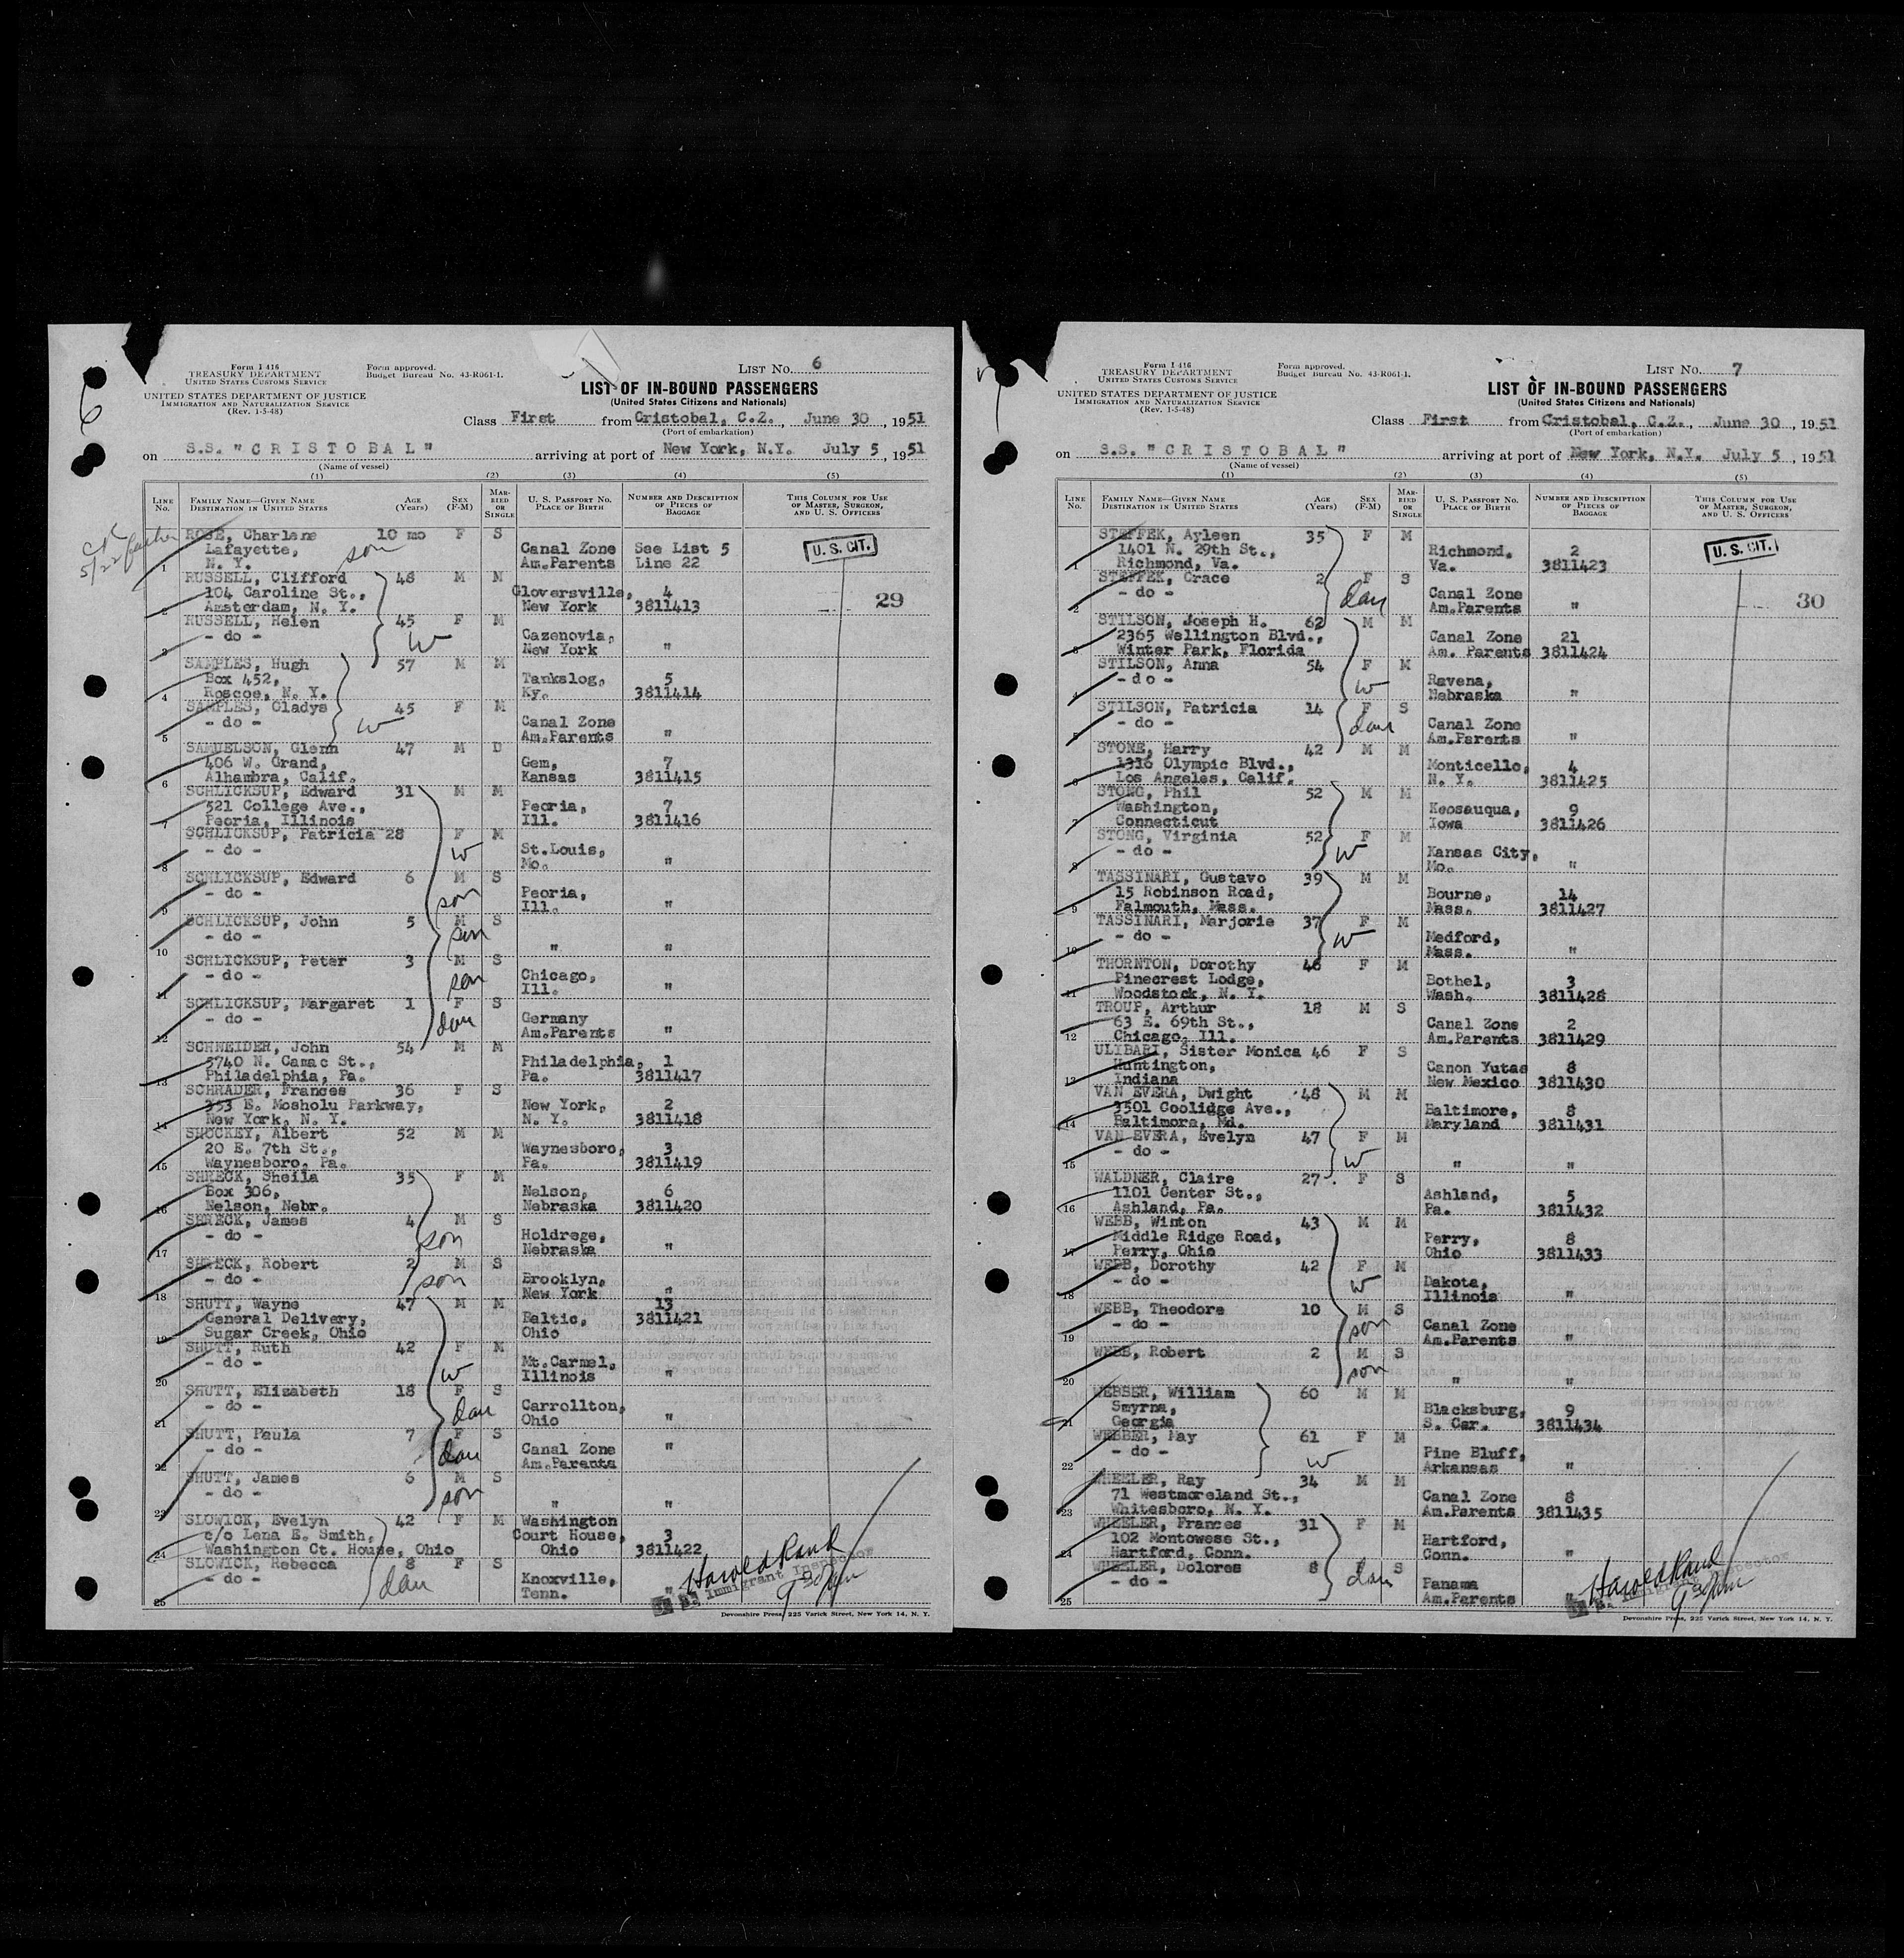 Form I 416
TREASURY DEPARTMENT
UNITED STATES CUSTOMS SERVICE
UNITED STATES DEPARTMENT OF JUSTICE
IMMIGRATION AND NATURALIZATION SERVICE
(Rev. 1-5-48)
Form approved.
Budget Bureau No. 43-R061-1.
LIST No. 6
LIST OF IN-BOUND PASSENGERS
(United States Citizens and Nationals)
Class First from Cristobal, C.Z., June 30, 1951
(Port of embarkation)
on S.S. "CRISTOBAL" arriving at port of New York, N.Y. July 5, 1951
(Name of vessel)
(1) (2) (3) (4) (5)
LINE No. FAMILY NAME—GIVEN NAME DESTINATION IN UNITED STATES AGE (Years) SEX (F-M) MARRIED OR SINGLE U. S. PASSPORT NO. PLACE OF BIRTH NUMBER AND DESCRIPTION OF PIECES OF BAGGAGE THIS COLUMN FOR USE OF MASTER, SURGEON, AND U. S. OFFICERS
5/22 father
ROSE, Charlene 10 mo F S
Lafayette, son Canal Zone See List 5 U. S. CIT.
1 N. Y. Am.Parents Line 22
RUSSELL, Clifford 48 M M
104 Caroline St., Gloversville, 4
2 Amsterdam, N. Y. New York 3811413 29
RUSSELL, Helen 45 F M
- do - W Cazenovia,
3 New York "
SAMPLES, Hugh 57 M M
Box 452, Tankslog, 5
4 Roscoe, N. Y. Ky. 3811414
SAMPLES, Gladys 45 F M
- do - W Canal Zone
5 Am.Parents "
SAMUELSON, Glenn 47 M D
406 W. Grand, Gem, 7
6 Alhambra, Calif. Kansas 3811415
SCHLICKSUP, Edward 31 M M
521 College Ave., Peoria, 7
7 Peoria, Illinois Ill. 3811416
SCHLICKSUP, Patricia 28 F M
- do - W St.Louis,
8 Mo. "
SCHLICKSUP, Edward 6 M S
- do - son Peoria,
9 Ill. "
SCHLICKSUP, John 5 M S
- do - son
10 " "
SCHLICKSUP, Peter 3 M S
- do - son Chicago,
11 Ill. "
SCHLICKSUP, Margaret 1 F S
- do - dau Germany
12 Am.Parents "
SCHNEIDER, John 54 M M
5740 N. Camac St., Philadelphia, 1
13 Philadelphia, Pa. Pa. 3811417
SCHRADER, Frances 36 F S
353 E. Mosholu Parkway, New York, 2
14 New York, N. Y. N. Y. 3811418
SHOCKEY, Albert 52 M M
20 E. 7th St., Waynesboro, 3
15 Waynesboro, Pa. Pa. 3811419
SHRECK, Sheila 35 F M
Box 306, Nelson, 6
16 Nelson, Nebr. Nebraska 3811420
SHRECK, James 4 M S
- do - son Holdrege,
17 Nebraska "
SHRECK, Robert 2 M S
- do - son Brooklyn,
18 New York "
SHUTT, Wayne 47 M M 13
General Delivery, Baltic, 3811421
19 Sugar Creek, Ohio Ohio
SHUTT, Ruth 42 F M
- do - W Mt.Carmel,
20 Illinois "
SHUTT, Elizabeth 18 F S
- do - dau Carrollton,
21 Ohio "
SHUTT, Paula 7 F S
- do - dau Canal Zone "
22 Am.Parents
SHUTT, James 6 M S
- do - son
23 " "
SLOWICK, Evelyn 42 F M Washington
c/o Lena E. Smith, Court House, 3
24 Washington Ct. House, Ohio Ohio 3811422
SLOWICK, Rebecca 8 F S
- do - dau Knoxville,
25 Tenn. "
Harold Rand
Immigrant Inspector
9 30 am
Devonshire Press, 225 Varick Street, New York 14, N. Y.
Form I 416
TREASURY DEPARTMENT
UNITED STATES CUSTOMS SERVICE
UNITED STATES DEPARTMENT OF JUSTICE
IMMIGRATION AND NATURALIZATION SERVICE
(Rev. 1-5-48)
Form approved.
Budget Bureau No. 43-R061-1.
LIST No. 7
LIST OF IN-BOUND PASSENGERS
(United States Citizens and Nationals)
Class First from Cristobal, C.Z., June 30, 1951
(Port of embarkation)
on S.S. "CRISTOBAL" arriving at port of New York, N.Y. July 5, 1951
(Name of vessel)
(1) (2) (3) (4) (5)
LINE No. FAMILY NAME—GIVEN NAME DESTINATION IN UNITED STATES AGE (Years) SEX (F-M) MARRIED OR SINGLE U. S. PASSPORT NO. PLACE OF BIRTH NUMBER AND DESCRIPTION OF PIECES OF BAGGAGE THIS COLUMN FOR USE OF MASTER, SURGEON, AND U. S. OFFICERS
STEFFEK, Ayleen 35 F M
1401 N. 29th St., Richmond, 2 U. S. CIT.
1 Richmond, Va. Va. 3811423
STEFFEK, Grace 2 F S
- do - dau Canal Zone
2 Am.Parents " 30
STILSON, Joseph H. 62 M M
2365 Wellington Blvd., Canal Zone 21
3 Winter Park, Florida Am. Parents 3811424
STILSON, Anna 54 F M
- do - W Ravena,
4 Nebraska "
STILSON, Patricia 14 F S
- do - dau Canal Zone
5 Am.Parents "
STONE, Harry 42 M M
1316 Olympic Blvd., Monticello, 4
6 Los Angeles, Calif. N. Y. 3811425
STONG, Phil 52 M M
Washington, Keosauqua, 9
7 Connecticut Iowa 3811426
STONG, Virginia 52 F M
- do - W Kansas City,
8 Mo. "
TASSINARI, Gustavo 39 M M
15 Robinson Road, Bourne, 14
9 Falmouth, Mass. Mass. 3811427
TASSINARI, Marjorie 37 F M
- do - W Medford,
10 Mass. "
THORNTON, Dorothy 46 F M
Pinecrest Lodge, Bothel, 3
11 Woodstock, N. Y. Wash. 3811428
TROUP, Arthur 18 M S
63 E. 69th St., Canal Zone 2
12 Chicago, Ill. Am.Parents 3811429
ULIBARI, Sister Monica 46 F S
Huntington, Canon Yutas 8
13 Indiana New Mexico 3811430
VAN EVERA, Dwight 48 M M
3501 Coolidge Ave., Baltimore, 8
14 Baltimore, Md. Maryland 3811431
VAN EVERA, Evelyn 47 F M
- do - W
15 " "
WALDNER, Claire 27 F S
1101 Center St., Ashland, 5
16 Ashland, Pa. Pa. 3811432
WEBB, Winton 43 M M
Middle Ridge Road, Perry, 8
17 Perry, Ohio Ohio 3811433
WEBB, Dorothy 42 F M
- do - W Dakota,
18 Illinois "
WEBB, Theodore 10 M S
- do - son Canal Zone
19 Am.Parents "
WEBB, Robert 2 M S
- do - son
20 " "
WEBSER, William 60 M M
Smyrna, Blacksburg, 9
21 Georgia S. Car. 3811434
WEBBER, May 61 F M
- do - W Pine Bluff,
22 Arkansas "
WHEELER, Ray 34 M M
71 Westmoreland St., Canal Zone 8
23 Whitesboro, N. Y. Am.Parents 3811435
WHEELER, Frances 31 F M
102 Montowese St., Hartford,
24 Hartford, Conn. Conn. "
WHEELER, Dolores 8 F S
- do - dau Panama
25 Am.Parents "
Harold Rand
Immigrant Inspector
9 30 am
Devonshire Press, 225 Varick Street, New York 14, N. Y.